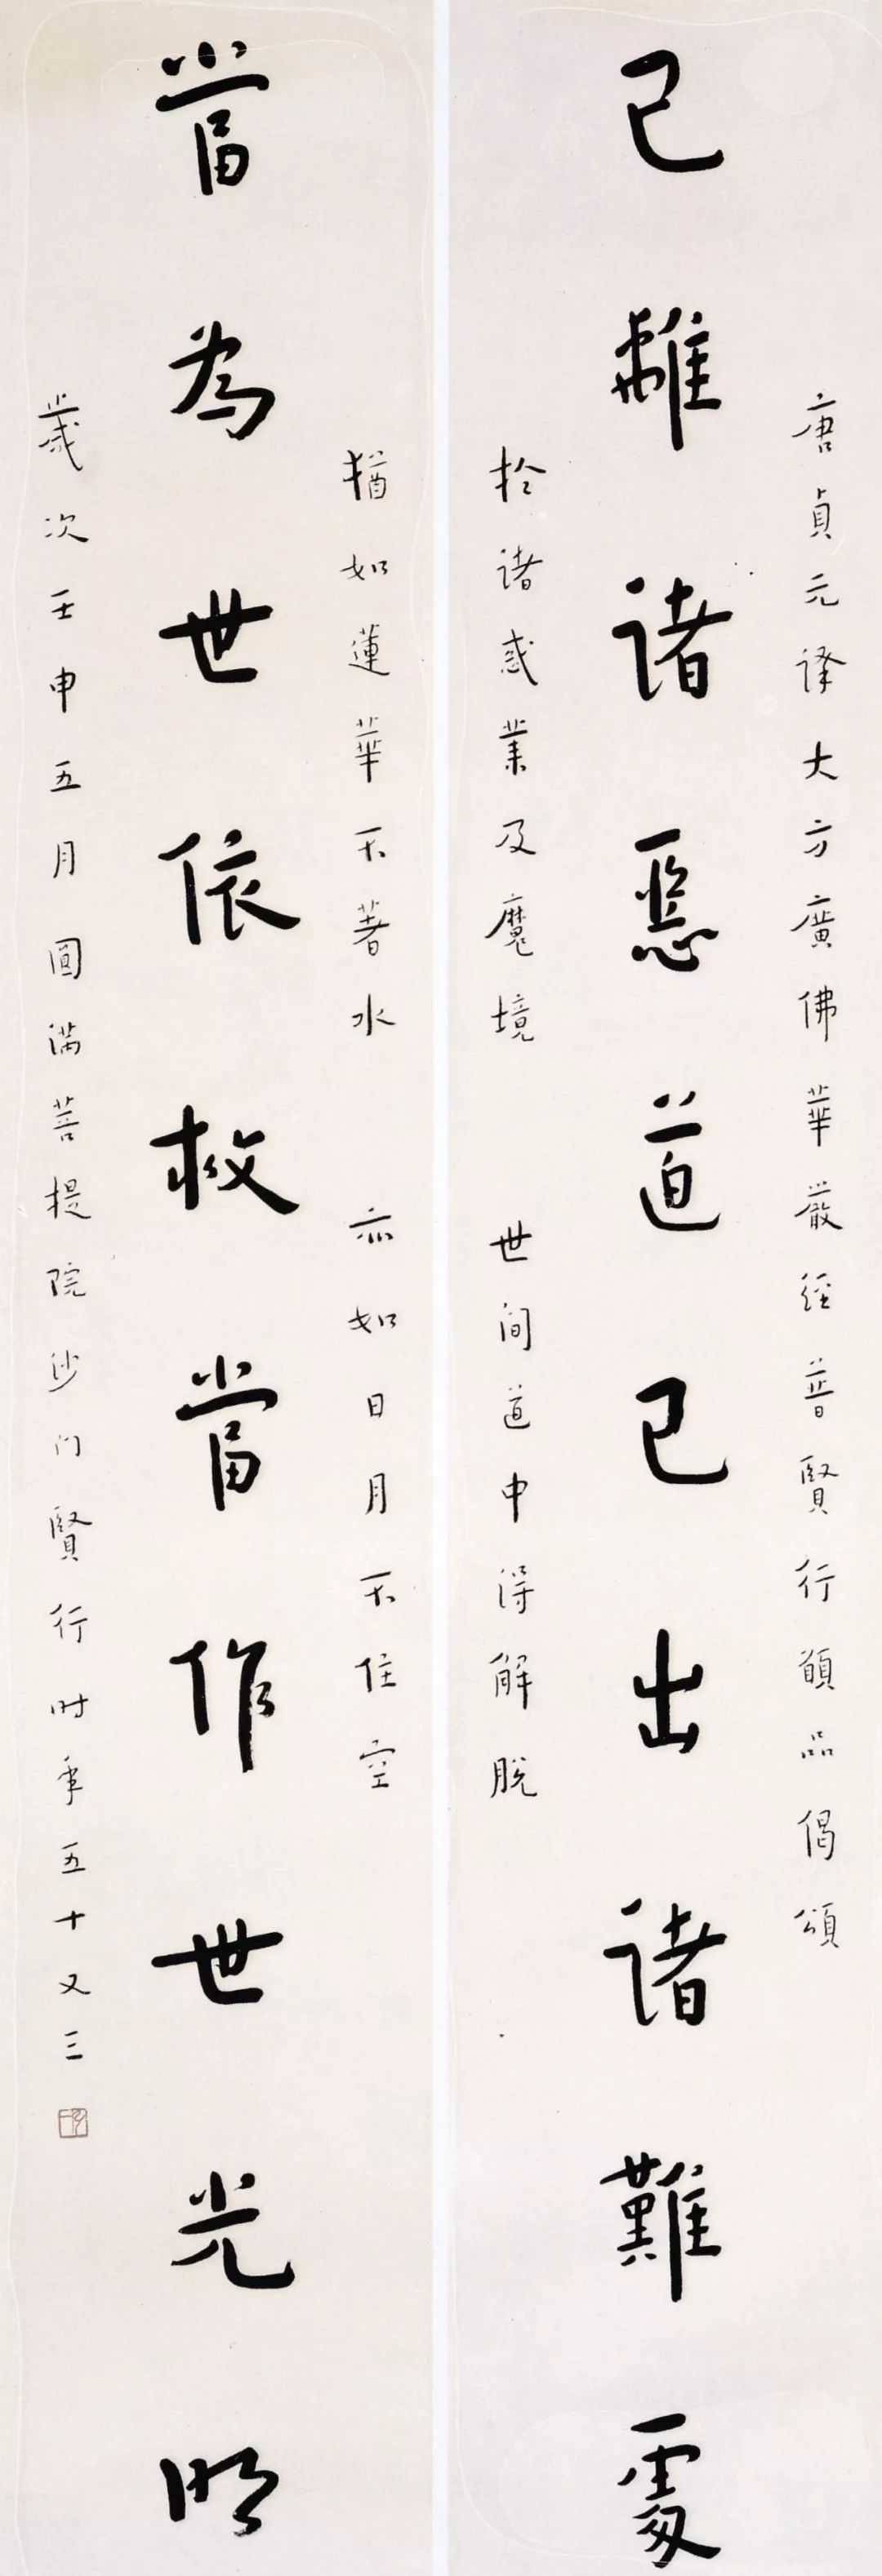 唐貞元译大方廣佛華嚴經普賢行願品偈頌
已離诸惡道已出诸難處
於诸惑業及魔境 世间道中得解脱
猶如蓮華不著水 亦如日月不住空
當為世依救當作世光明
歲次壬申五月圓满菩提院沙门賢行时年五十又三